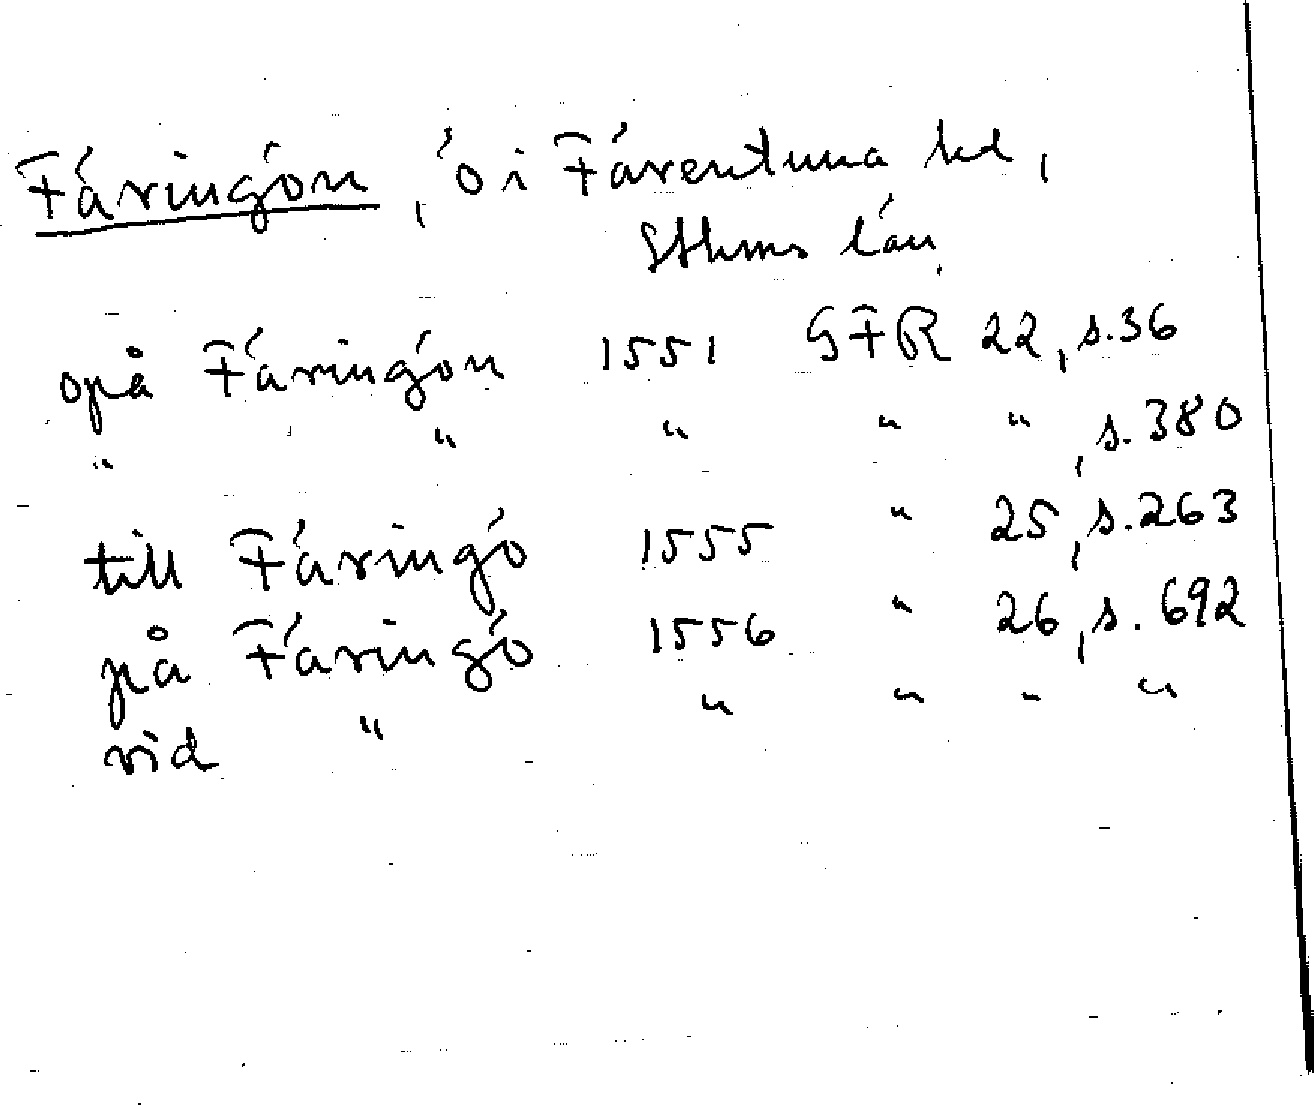 Färingön, ö i Färentuna hd,
Sthms län
opå Färingön 1551 GFR 22, s. 36
" " " " " , s. 380
till Färingö 1555 " 25, s. 263
på Färingö 1556 " 26, s. 692
vid " " " " "